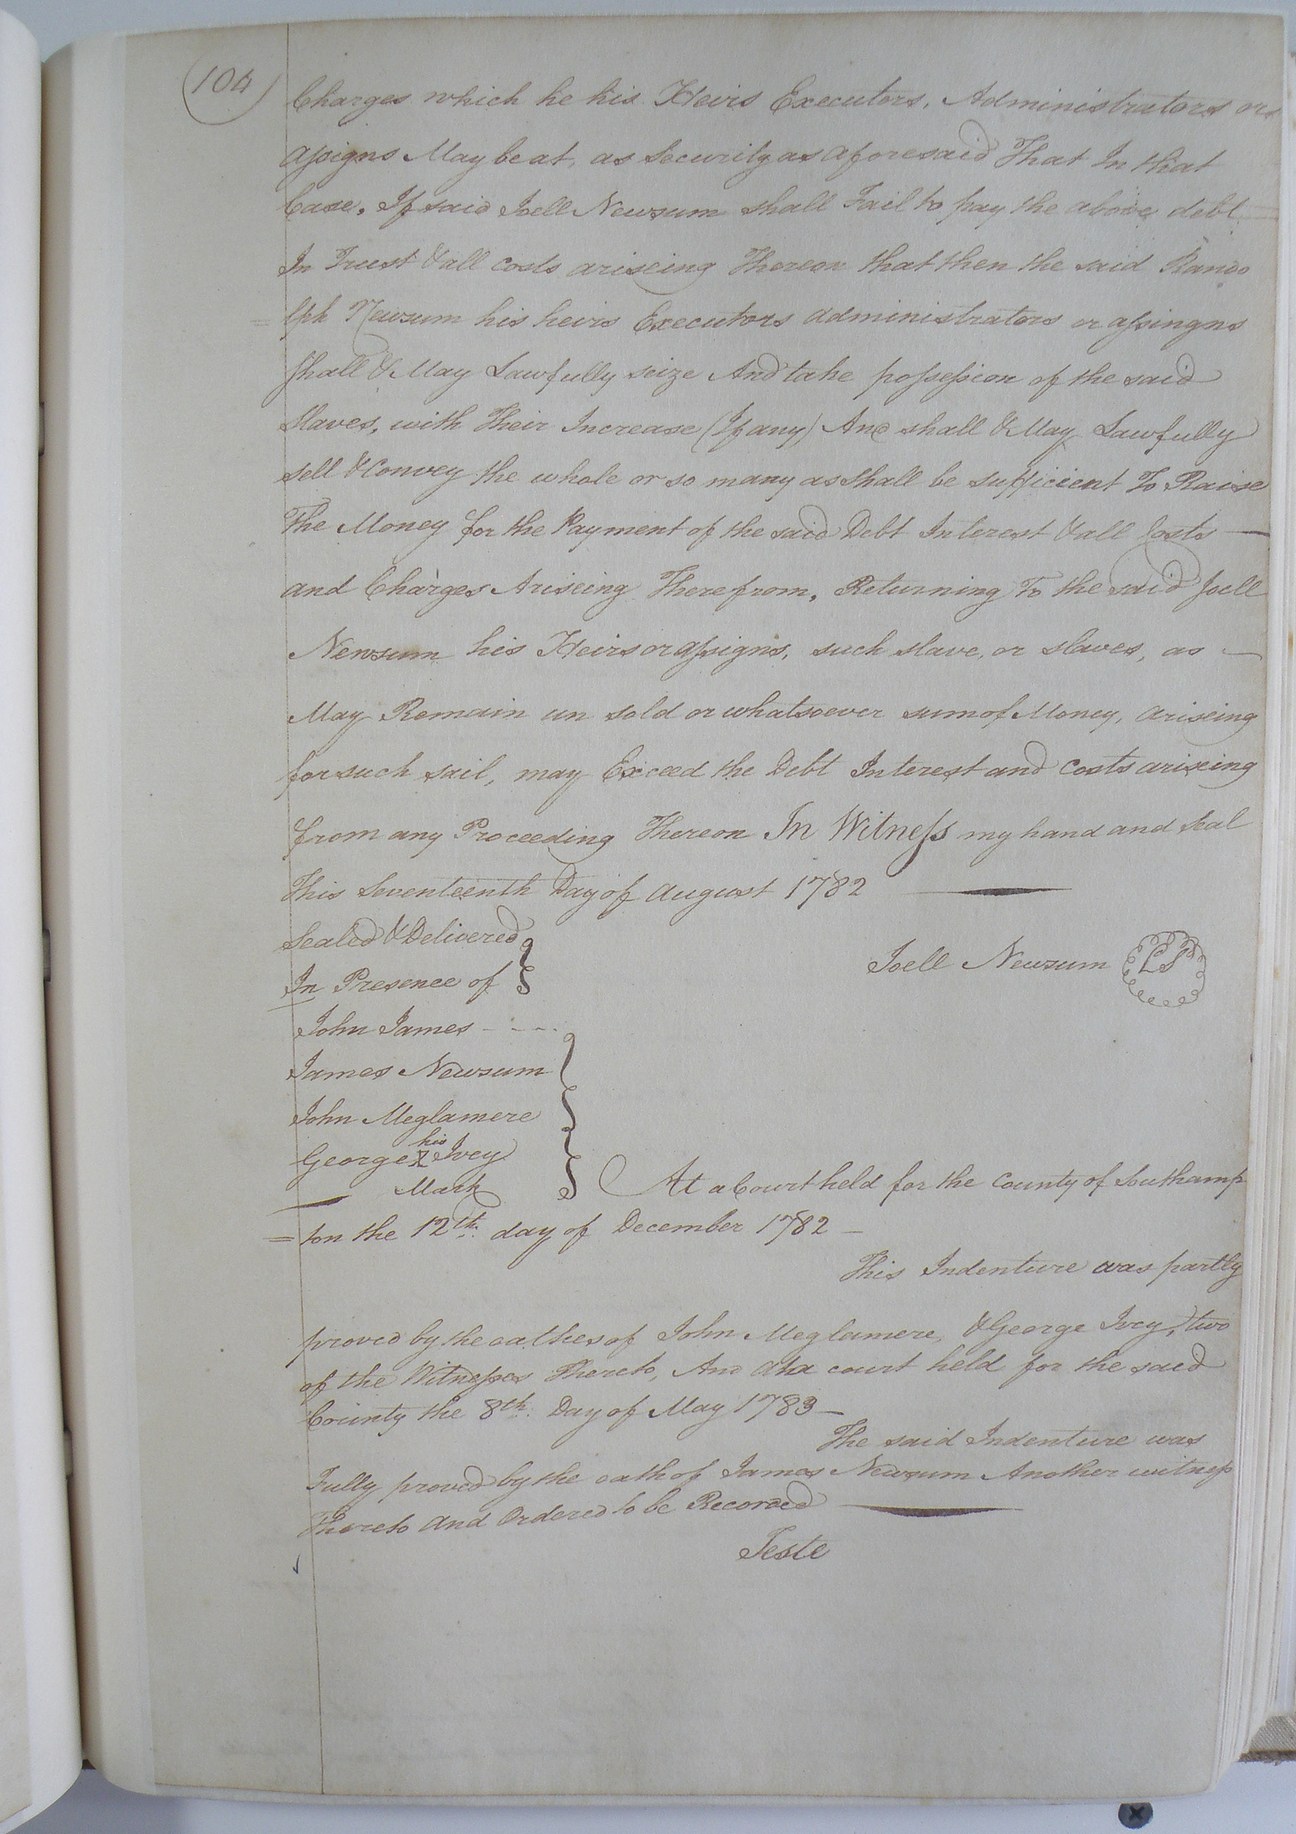 104
Charges which he his Heirs Executors, Administrators or
assigns May be at, as Security as aforesaid That In that
Case, If said Joell Newsum shall Fail to pay the above debt
In Trust & all costs ariseing Thereon that then the said Rando
lph Newsum his heirs Executors administrators or assingns
shall & May Lawfully seize And take possession of the said
Slaves, with Their Increase (If any) And shall & May Lawfully
sell & Convey the whole or so many as shall be sufficient To Raise
The Money for the Payment of the said Debt Interest & all Costs —
and Charges Ariseing Therefrom, Returning To the said Joell
Newsum his Heirs or assigns, such slave, or slaves, as —
May Remain un sold or whatsoever sum of Money, ariseing
for such sail, may Exceed the Debt Interest and Costs ariseing
from any Proceeding Thereon In Witness my hand and Seal
This Seventeenth Day of August 1782 —
Sealed & Delivered
In Presence of
Joell Newsum LS
John James - - - -
James Newsum
John Meglamere
George his X Ivey
Mark
At a Court held for the County of Southamp
= ton the 12th. day of December 1782 —
This Indenture was partly
proved by the oathes of John Meglamere, & George Ivey, two
of the Witnesses Thereto, And at a court held for the said
County the 8th. Day of May 1783 —
The said Indenture was
Fully proved by the oath of James Newsum Another witness
Thereto and Ordered to be Recorded —
Teste